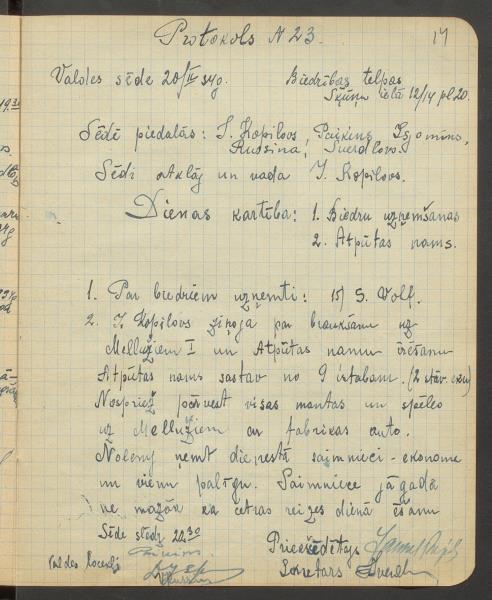 Protokols N 23.
17
Valdes sēde 20/IV 34g.
Biedrības telpas
Šķūņu ielā 12/14 pl 20.
Sēdē piedalās: J. Kopilovs, Egomins,
Russina, Sverdlovs.
Sēdi atklāj un vada J. Kopilovs.
Dienas kārtība: 1. Biedru uzņemšanas
2. Atpūtas nams.
1. Par biedriem uzņemti: 15) S. Volf.
2. J. Kopilovs ziņoja par braukšanu uz
Mellužiem I un Atpūtas namu īrēšanu
Atpūtas nams sastāv no 9 istabām. (2 stāv. ēku)
Nospriež pārvest visas mantas un spēles
uz Mellužiem ar fabrikas auto.
Nolemj ņemt dienestā saimnieci - ekonomi
un vienu palīgu. Saimniece jāgādā
ne mazāk kā četras reizes dienā ēšanu
Sēde slēdz 22.30
Priekšēdētājs
Valdes locekļi
Sekretārs Sverdl